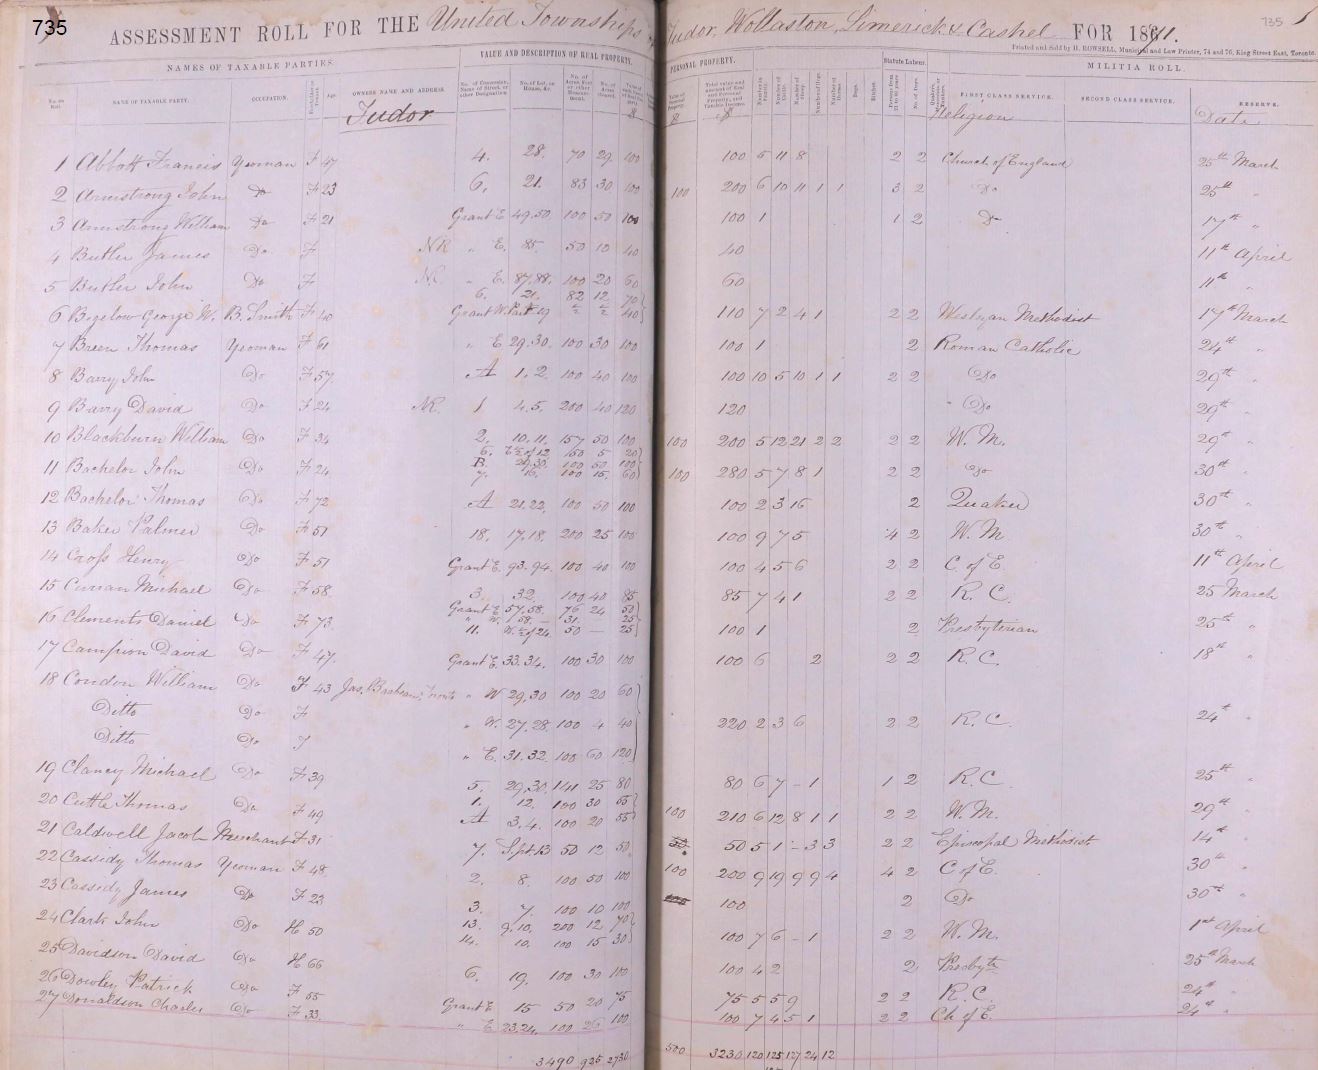 735
735
ASSESSMENT ROLL FOR THE United Townships of Tudor, Wollaston, Limerick & Cashel FOR 1861.
Printed and Sold by H. ROWSELL, Municipal and Law Printer, 74 and 76, King Street East, Toronto.
NAMES OF TAXABLE PARTIES. VALUE AND DESCRIPTION OF REAL PROPERTY. PERSONAL PROPERTY. Statute Labour. MILITIA ROLL.
NAME OF TAXABLE PARTY. OCCUPATION. Age. OWNERS NAME AND ADDRESS. FIRST CLASS SERVICE. SECOND CLASS SERVICE. RESERVE.
Tudor Religion Date
1 Abbott Francis Yeoman F 47 4. 28. 70 29 100 100 5 11 8 2 2 Church of England 25th March
2 Armstrong John Do F 23 6. 21. 83 30 100 100 200 6 10 11 1 1 3 2 Do 25th "
3 Armstrong William Do F 21 Grant E 49.50. 100 50 100 100 1 1 2 Do 17th "
4 Butler James Do F NR " E. 85. 50 12 40 40 11th April
5 Butler John Do F NR " E. 87.88. 100 20 60 60 11th "
6. 21. 82 12 70
6 Bigelow George W. B. Smith F 40 Grant W. Part 29 ½ ½ 40 110 7 2 4 1 2 2 Wesleyan Methodist 17th March
7 Breen Thomas Yeoman F 61 " E 29.30. 100 30 100 100 1 2 Roman Catholic 24th "
8 Barry John Do F 57 A 1.2. 100 40 100 100 10 5 10 1 1 2 2 Do 29th "
9 Barry David Do F 24 NR. 1 4.5. 200 40 120 120 " Do 29th "
10 Blackburn William Do F 34 2. 10.11. 157 50 100 100 200 5 12 21 2 2 2 2 W. M. 29th "
6. E½ of 12 160 5 20
11 Bachelor John Do F 24 B. 29.30. 100 50 100 100 280 5 7 8 1 2 2 Do 30th "
7. 16. 100 15. 60
12 Bachelor Thomas Do F 72 A 21.22. 100 50 100 100 2 3 16 2 Quaker 30th "
13 Baker Palmer Do F 51 18. 17.18. 200 25 100 100 9 7 5 4 2 W. M. 30th "
14 Cross Henry Do F 51 Grant E. 93.94. 100 40 100 100 4 5 6 2 2 C. of E. 11th April
15 Curran Michael Do F 58 3. 32. 100 40 85 85 7 4 1 2 2 R. C. 25 March
Grant E 57.58. 76 24 50
16 Clements Daniel Do F 73. " W. 58. – 31. 25 100 1 2 Presbyterian 25th "
11. W.½ of 24 50 – 25
17 Campion David Do F 47. Grant E. 33.34. 100 30 100 100 6 2 2 2 R. C. 18th "
18 Condon William Do F 43 " W 29.30 100 20 60
Ditto Do F " W. 27.28. 100 4 40 220 2 3 6 2 2 R. C. 24th "
Ditto Do F " E. 31.32. 100 60 120
19 Clancy Michael Do F 39 5. 29.30. 141 25 80 80 6 7 – 1 1 2 R. C. 25th "
1. 12. 100 30 55
20 Cuttle Thomas Do F 49 A 3.4. 100 20 55 100 210 6 12 8 1 1 2 2 W. M. 29th "
21 Caldwell Jacob Merchant F 31 7. S.pt.13 50 12 50 50 50 5 1 – 3 3 2 2 Episcopal Methodist 14th "
22 Cassidy Thomas Yeoman F 48 2. 8. 100 50 100 100 200 9 19 9 9 4 4 2 C of E. 30th "
23 Cassidy James Do F 23 3. 7. 100 10 100 100 100 2 Do 30th "
13. 9.10. 200 12 70
24 Clark John Do H 50 14. 10. 100 15 30 100 7 6 – 1 2 2 W. M. 1st April
25 Davidson David Do H 66 6. 19. 100 30 100 100 4 2 2 Presbytn 25th March
26 Dowley Patrick Do F 55 Grant E 15 50 20 75 75 5 5 9 2 2 R. C. 24th "
27 Donaldson Charles Do F 33. " E 23.24. 100 26 100 100 7 4 5 1 2 2 Ch of E. 24th "
3490 925 2730 500 3230 120 125 127 24 12